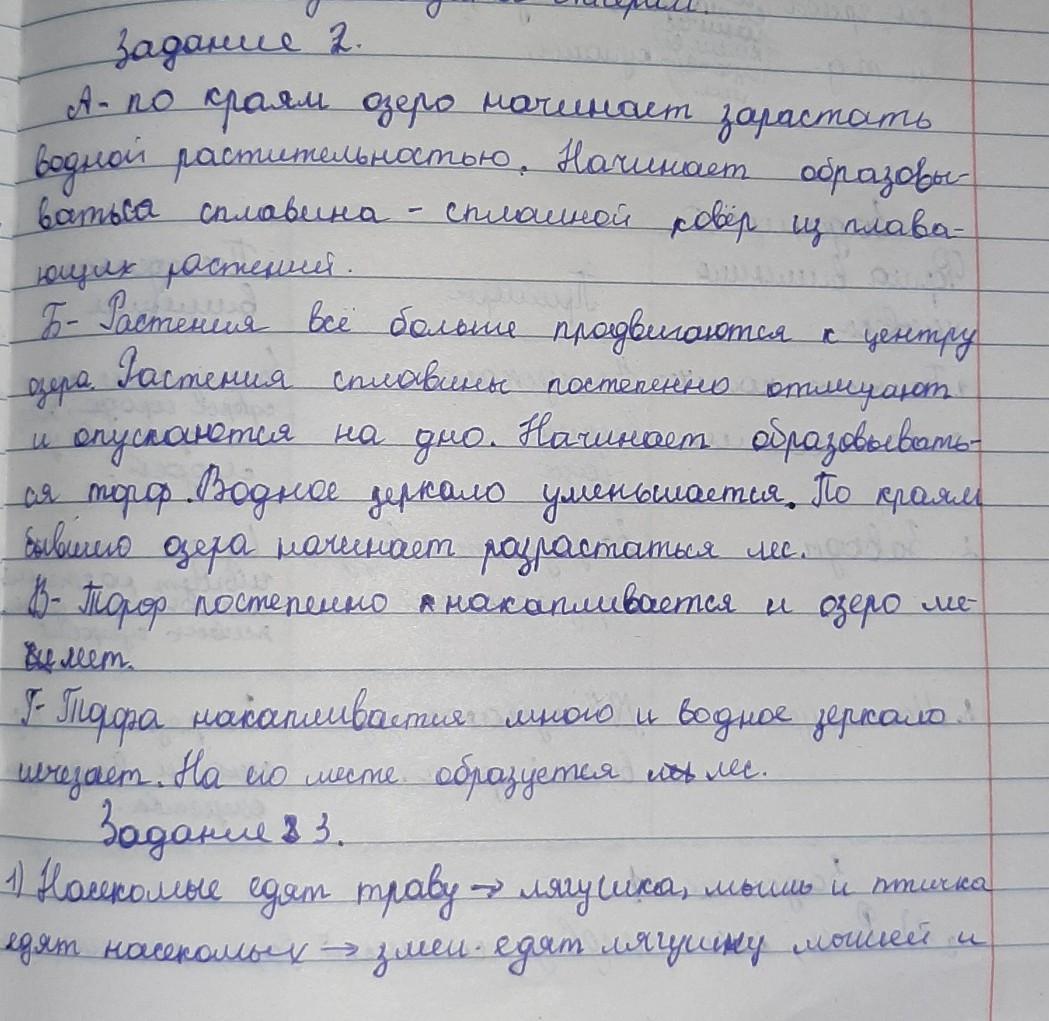 Задание 2.
А- по краям озеро начинает зарастать
водной растительностью. Начинает образовы-
ваться сплавина - сплошной ковёр из плава-
ющих растений.
Б- Растения всё больше продвигаются к центру
озера. Растения сплавины постепенно отмирают
и опускаются на дно. Начинает образовывать-
ся торф. Водное зеркало уменьшается. По краям
бывшего озера начинает разрастаться лес.
В- Торф постепенно накапливается и озеро ме-
леет.
Г- Торфа накапливается много и водное зеркало
исчезает. На его месте образуется лес.
Задание 3.
1) Насекомые едят траву → лягушка, мышь и птичка
едят насекомых → змеи едят лягушку мышей и